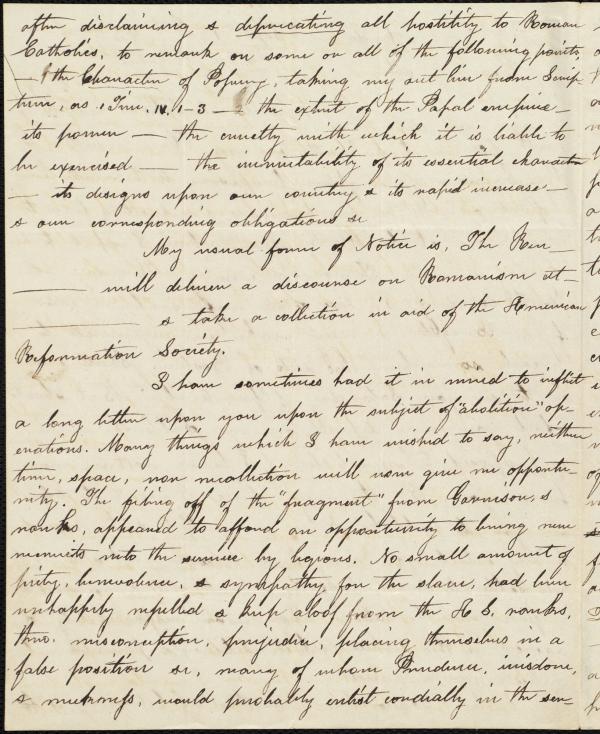 often disclaiming & deprecating all hostility to Roman
Catholics, to remark on some or all of the following points,
— the Character of Popery, taking my out line from Scrip-
ture, as 1 Tim. IV, 1–3 — the extent of the Papal empire —
its power — the cruelty with which it is liable to
be exercised — the immutability of its essential character
— its designs upon our country & its rapid increase —
& our corresponding obligations &c
My usual form of Notice is, The Rev —
—— will deliver a discourse on Romanism at —
—— & take a collection in aid of the American
Reformation Society.
I have sometimes had it in mind to inflict
a long letter upon you upon the subject of "abolition" op-
erations. Many things which I have wished to say, neither
time, space, nor recollection will now give me opportu-
nity. The filing off of the "fragment" from Garrison's
ranks, appeared to afford an opportunity to bring new
recruits into the service by legions. No small amount of
piety, benevolence, & sympathy for the slave, had been
unhappily repelled & kept aloof from the A S. ranks,
thro. misconception, prejudice, placing themselves in a
false position &c, many of whom Prudence, wisdom,
& meekness, would probably enlist cordially in the ser-